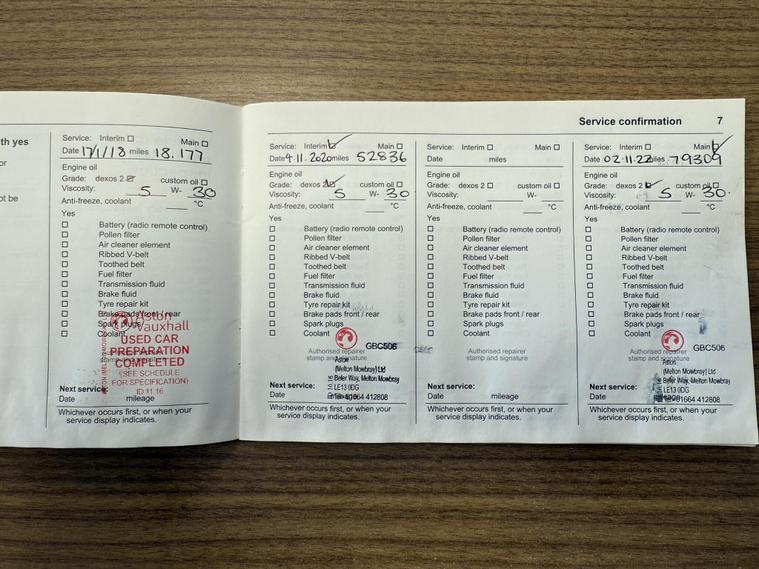 th yes
or
ot be
Service: Interim ☐ Main ☐
Date 17/1/18 miles 18.177
Engine oil
Grade: dexos 2 ☑ custom oil ☐
Viscosity: 5 W- 30
Anti-freeze, coolant °C
Yes
☐ Battery (radio remote control)
☐ Pollen filter
☐ Air cleaner element
☐ Ribbed V-belt
☐ Toothed belt
☐ Fuel filter
☐ Transmission fluid
☐ Brake fluid
☐ Tyre repair kit
☐ Brake pads front / rear
☐ Spark plugs
☐ Coolant
Aston
Vauxhall
USED CAR
PREPARATION
COMPLETED
(SEE SCHEDULE
FOR SPECIFICATION)
ID 11.16
Next service:
Date mileage
Whichever occurs first, or when your
service display indicates.
Service confirmation 7
Service: Interim ☑ Main ☐
Date 4.11.2020 miles 52836
Engine oil
Grade: dexos 2 ☑ custom oil ☐
Viscosity: 5 W- 30
Anti-freeze, coolant °C
Yes
☐ Battery (radio remote control)
☐ Pollen filter
☐ Air cleaner element
☐ Ribbed V-belt
☐ Toothed belt
☐ Fuel filter
☐ Transmission fluid
☐ Brake fluid
☐ Tyre repair kit
☐ Brake pads front / rear
☐ Spark plugs
☐ Coolant
GBC506
Authorised repairer
stamp and signature
(Melton Mowbray) Ltd
Way, Melton Mowbray
LE13 0DG
01664 412808
Next service:
Date
Whichever occurs first, or when your
service display indicates.
Service: Interim ☐ Main ☐
Date miles
Engine oil
Grade: dexos 2 ☐ custom oil ☐
Viscosity: W-
Anti-freeze, coolant °C
Yes
☐ Battery (radio remote control)
☐ Pollen filter
☐ Air cleaner element
☐ Ribbed V-belt
☐ Toothed belt
☐ Fuel filter
☐ Transmission fluid
☐ Brake fluid
☐ Tyre repair kit
☐ Brake pads front / rear
☐ Spark plugs
☐ Coolant
Authorised repairer
stamp and signature
Next service:
Date mileage
Whichever occurs first, or when your
service display indicates.
Service: Interim ☐ Main ☑
Date 02.11.22 miles 79309
Engine oil
Grade: dexos 2 ☑ custom oil ☐
Viscosity: 5 W- 30
Anti-freeze, coolant °C
Yes
☐ Battery (radio remote control)
☐ Pollen filter
☐ Air cleaner element
☐ Ribbed V-belt
☐ Toothed belt
☐ Fuel filter
☐ Transmission fluid
☐ Brake fluid
☐ Tyre repair kit
☐ Brake pads front / rear
☐ Spark plugs
☐ Coolant
GBC506
Authorised repairer
stamp and signature
(Melton Mowbray) Ltd
Way, Melton Mowbray
LE13 0DG
01664 412808
Next service:
Date mileage
Whichever occurs first, or when your
service display indicates.